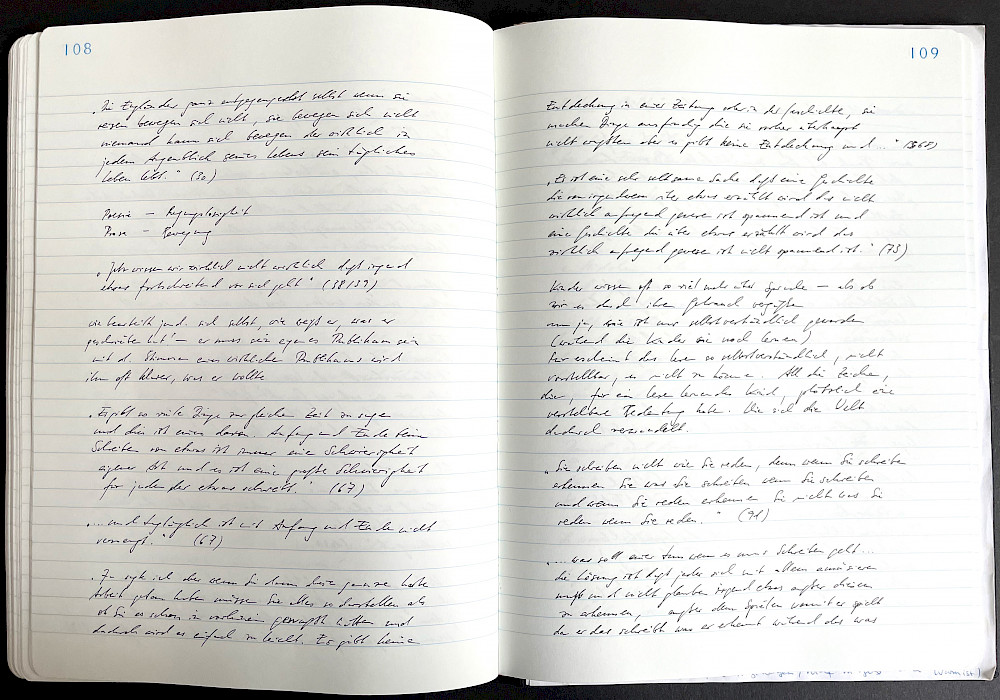 108
"Die Engländer ganz entgegengesetzt selbst wenn sie
reisen bewegen sich nicht, sie bewegen sich nicht
niemand kann sich bewegen der wirklich in
jedem Augenblick seines Lebens sein tägliches
Leben lebt." (30)
Poesie — Regungslosigkeit
Prosa — Bewegung
"Jetzt wissen wir wirklich nicht wirklich daß irgend
etwas fortschreitend vor sich geht" (38/39)
sich selbst, wie weiß er, was er
geschrieben hat — er muss sein eigenes Publikum sein
mit d. Stimmen eines wirklichen Publikums wird
ihm oft klarer, was er wollte
"Es gibt so viele Dinge zur gleichen Zeit zu sagen
und dies ist eines davon. Anfang und Ende beim
Schreiben von etwas ist immer eine Schwierigkeit
eigener Art und es ist eine große Schwierigkeit
für jeden der etwas schreibt." (67)
"... und tagtäglich ist mit Anfang und Ende nicht
" (67)
ich aber wenn Sie dann diese ganze harte
Arbeit getan haben müssen Sie alles so darstellen als
ob Sie es schon im vorhinein gewusst hätten und
dadurch wird es einfach zu leicht. Es gibt keine
109
Entdeckung in einer Zeitung oder in der Geschichte, sie
machen Dinge ausfindig die sie vorher überhaupt
nicht wußten aber es gibt keine Entdeckung und ..." (68)
"Es ist eine sehr seltsame Sache daß eine Geschichte
die von irgendeinem über etwas erzählt wird das nicht
wirklich aufregend gewesen ist spannend ist und
eine Geschichte die über etwas erzählt wird das
wirklich aufregend gewesen ist nicht spannend ist." (73)
Kinder wissen oft so viel mehr über Sprache — als ob
wir es durch ihren Gebrauch vergäßen
nun ja, sie ist uns selbstverständlich geworden
(während die Kinder sie noch lernen)
Mir erscheint das Lesen so selbstverständlich, nicht
vorstellbar, es nicht zu können. All die Zeichen,
die, für ein lesen lernendes Kind, plötzlich eine
Bedeutung haben. Wie sich die Welt
dadurch verwandelt.
"Sie schreiben nicht wie Sie reden, denn wenn Sie schreiben
erkennen Sie was Sie schreiben wenn Sie schreiben
und wenn Sie reden erkennen Sie nicht was Sie
reden wenn Sie reden." (91)
"... was soll einer tun wenn es ums Schreiben geht...
die Lösung ist daß jeder sich mit allem amüsieren
muß und nicht glauben irgend etwas außer diesem
zu erkennen, außer dem Spielen womit er spielt
da er das schreibt was er erkennt während das was